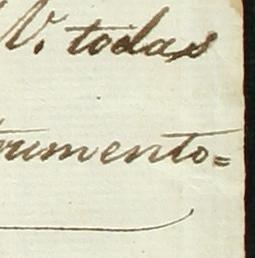 V. todas
trumento=